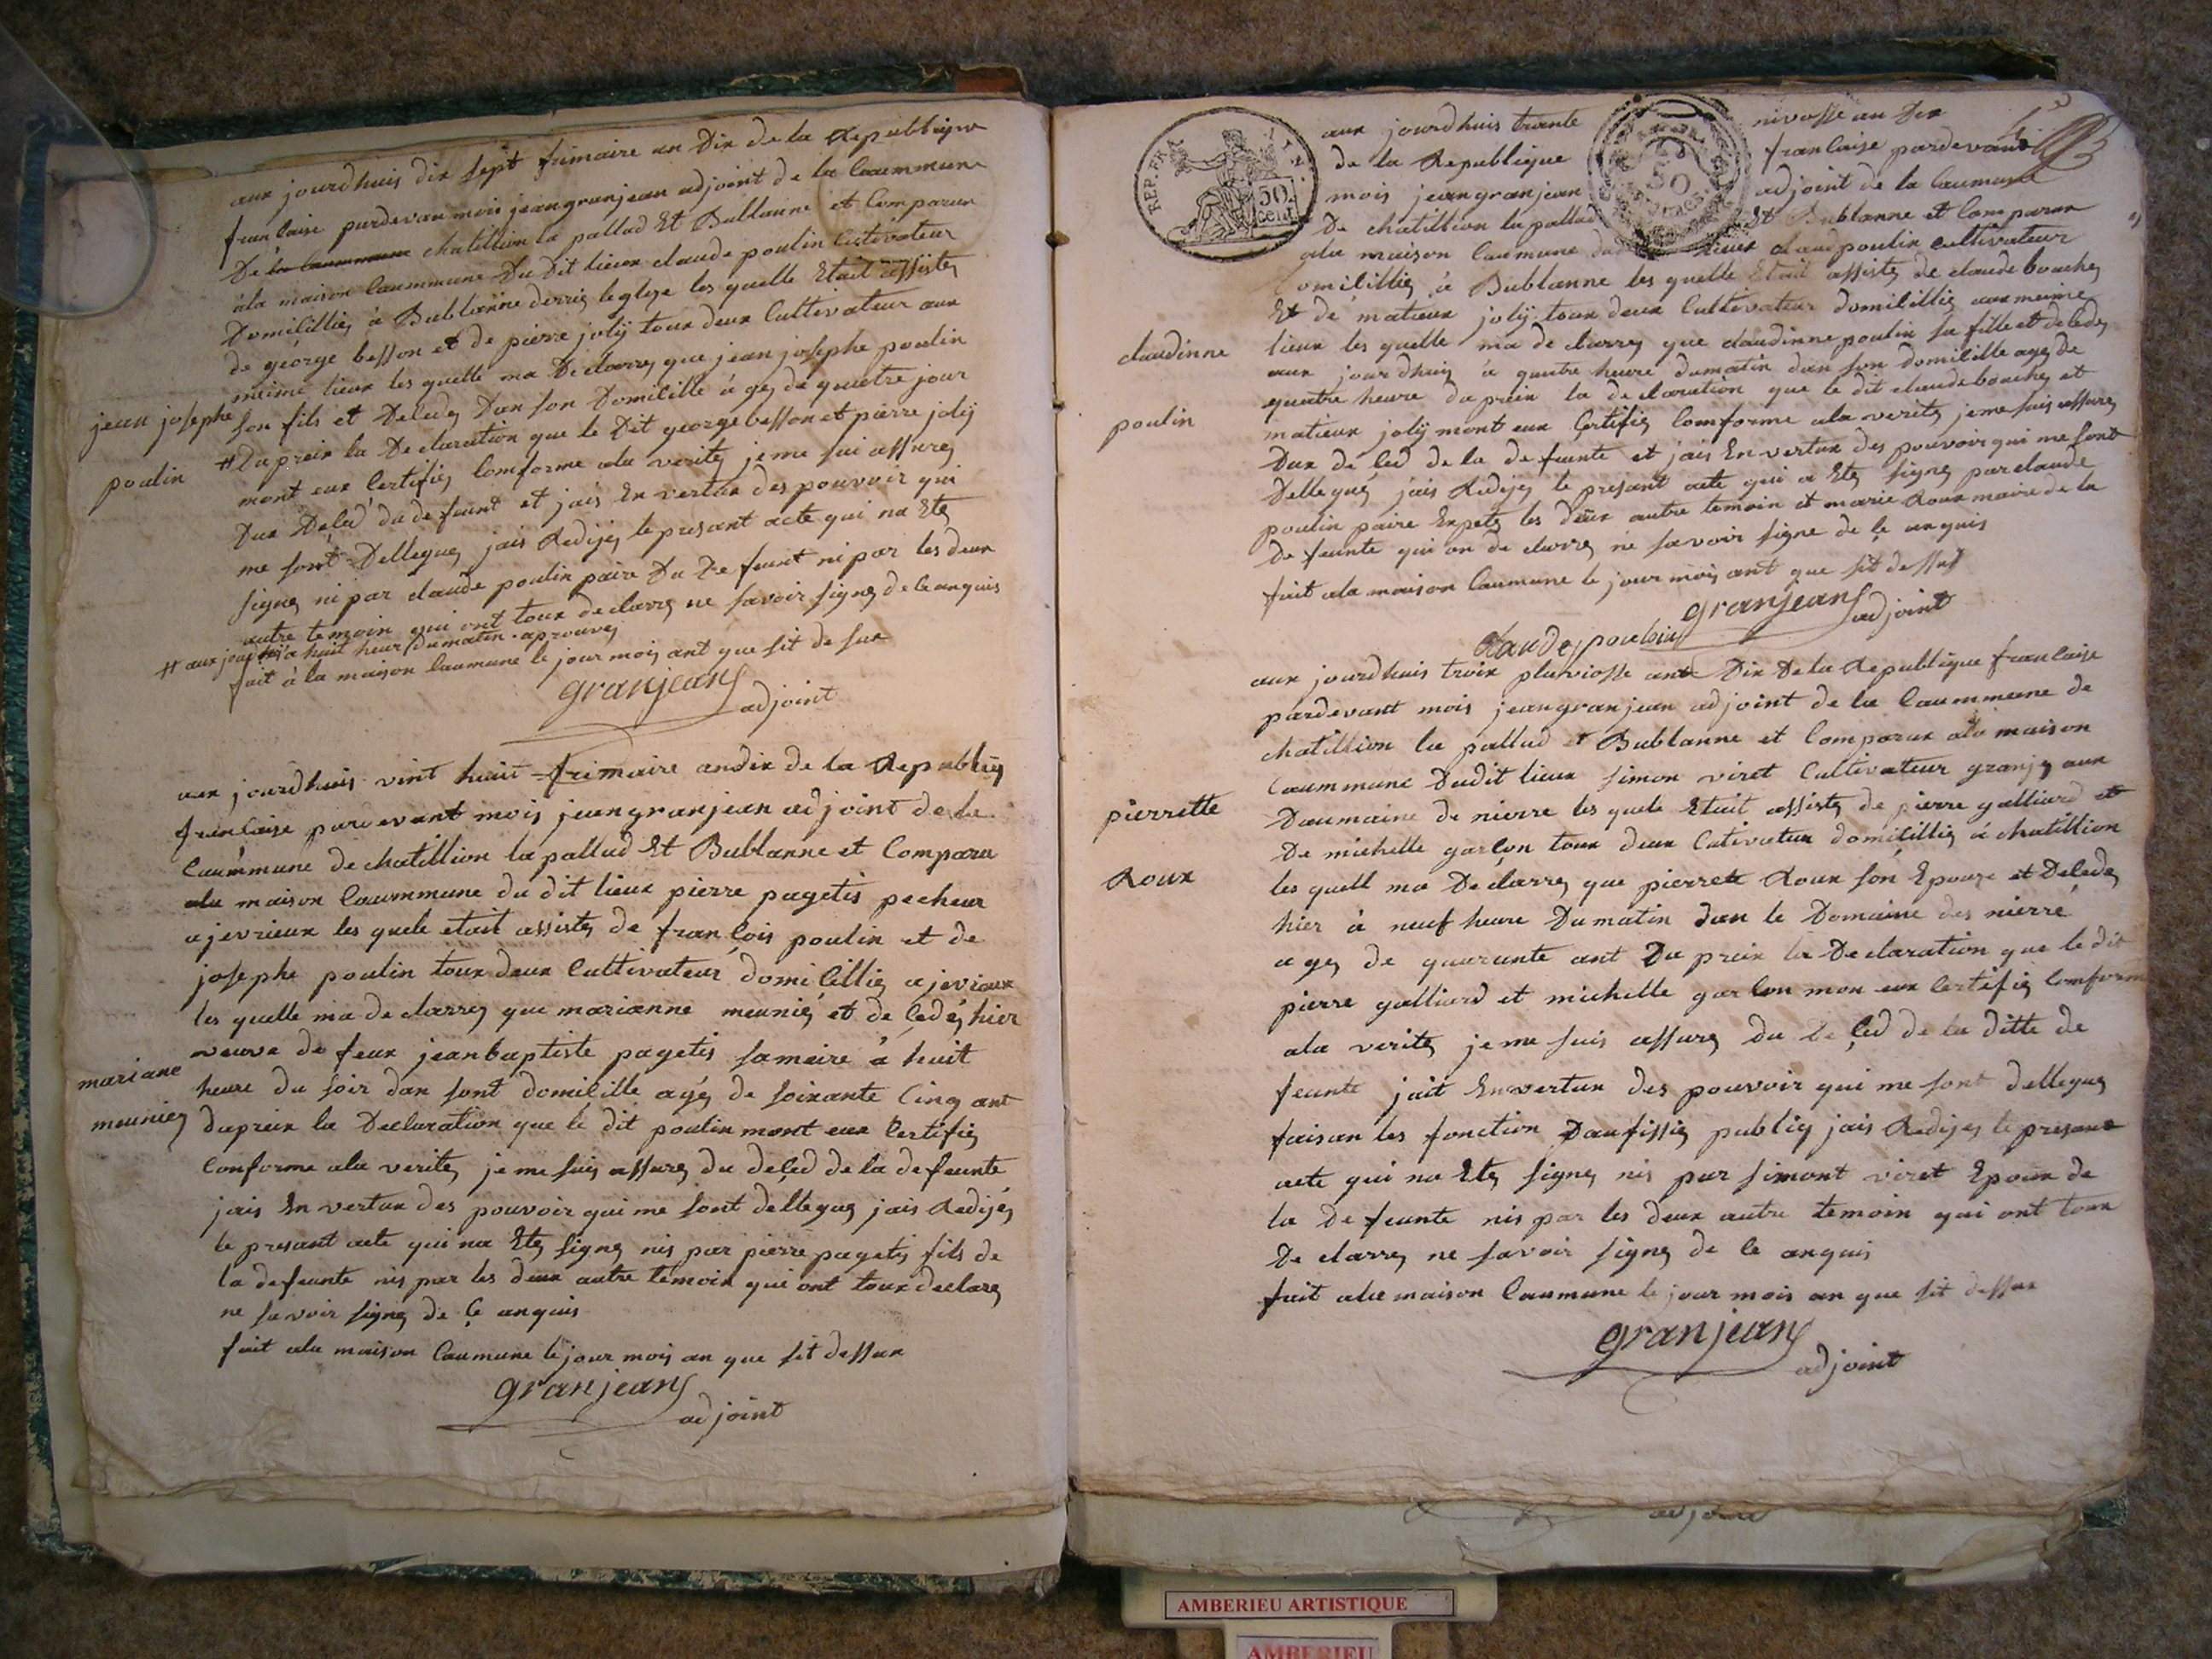 aux jourdhuis dix sept frimaire an Dix de la Republique
francaise pardevan mois jeangranjean adjoint de la Caummune
De la Caummune chatillion la pallud Et Bublanne et Comparu
àla maison Caummune Du Dit lieux claude poulin Cultivateur
Domicilliez à Bublanne derrié leglese les quelle Etait assistez
de géorge besson et de pierre jolij toux deux Cultivateur aux
meime lieux les quelle ma Declarrez que jean josephe poulin
jean josephe
poulin
son fils et Deledez Dan son Domicille á gez de quattre jour
# Dupreix la Declaration que le Dit george besson et pierre jolij
mont eux Certifiez Comforme ala veritez je me sui assurez
Dux Déled du defeunt et jais En vertux des pouvoir qui
me sont Delleguez jais Redijez le presant acte qui na Etez
signez ni par claude poulin paire Du De feunt ni par les deux
autre temoin qui ont toux declarrez ne savoir signez de le anquis
# aux jourdhui a huit heur dumatin aprouvez
fait à la maison Caumune le jour mois ant que sit de sux
granjean
adjoint
aux jourdhuis vint huit frimaire andix de la Republiq
francaise pardevant mois jeangranjean adjoint de la
Caummune de chatillion la pallud Et Bublanne et Comparu
ala maison Caummune du dit lieux pierre pagetis pecheur
a jevrieux les quele etait assistez de françois poulin et de
josephe poulin toux deux Cultivateur domicilliez a jevrieux
les quelle ma de clarrez que marianne meuniés et de çedéz hier
veuve de feux jeanbaptiste pagetis samaire à huit
mariane
meuniez
heure du soir dan sont domicille agéz de soixante Cinq ant
dupreix la Declaration que le dit poulin mont eux Certifiez
Conforme ala veritez je me suis assurez du deçed de la defeunte
jais En vertux des pouvoir qui me sont delleguez jais Redijéz
le presant acte qui na Etez signez nis par pierre pagetis fils de
la defeunte nis par les deux autre temoin qui ont toux declarez
ne savoir signez de çe anquis
fait ala maison Caumune le jour mois an que sit dessux
granjean
adjoint
REP. FRA
50
cent.
aux jourdhuis trante nivosse an Dix
de la Republique francaise pardevant
mois jeangranjean adjoint de la Caumune
De chatillion la pallud Et Bublanne et Comparu
ala maison Caumune dudit lieux claud poulin cultivateur
Domicilliez à Bublanne les quelle Etait assistez de claude bouchez
Et de matieux jolij toux deux Cultivateur domicilliez aux meime
claudinne
poulin
lieux les quelle ma de clarrez que claudinne poulin sa fille et deledez
aux jourdhuis à quatre heure dumatin dan son domicille agez de
quattre heure dupreix la declaration que le dit claude bouchez et
matieux jolij mont eux Çertifiez Comforme ala veritez jeme suis assurez
Dux de Çed de la de feunte et jais En vertux des pouvoir qui me sont
Dellegué jais Redijez le presant acte qui a Etez signez par claude
poulin paire Expetez les deux autre temoin et marie Roux maire de la
de feunte qui on de clarrez ne savoir signe de çe anquis
fait ala maison Caumune le jour mois ant que sit dessus
granjean
adjoint
Claude poulin
aux jourdhuis troix pluviosse ant Dix De la Republique francaise
pardevant mois jeangranjean adjoint de la Caummune de
chatillion la pallud et Bublanne et Comparux ala maison
Caummune Dudit lieux simon viret Cultivateur granjez aux
pierrette
Roux
Daumaine de nierre les quele Etait assistez de pierre galliard et
De michelle garçon toux deux Cutivateux domicilliez á chatillion
les quell ma Declarrez que pierrete Roux son Epouze et Deledez
hier à neuf heure Dumatin dan le Domaine des nierre
agez de quarante ant Du preix la Declaration que le dit
pierre galliard et michelle garçon mon eux Certifiez Comform
ala veritez je me suis assurez du de Çed de la ditte de
feunte jait En vertux des pouvoir qui me sont delleguez
faisan les fonction Daufissiez publiq jais Redijez le presant
acte qui na Etez signez nis par simont viret Epoux de
la De feunte nis par les deux autre temoin qui ont toux
De clarrez ne savoir signez de Ce anquis
fait ala maison Caumune le jour mois an que sit dessux
granjean
adjoint
AMBERIEU ARTISTIQUE
AMBERIEU